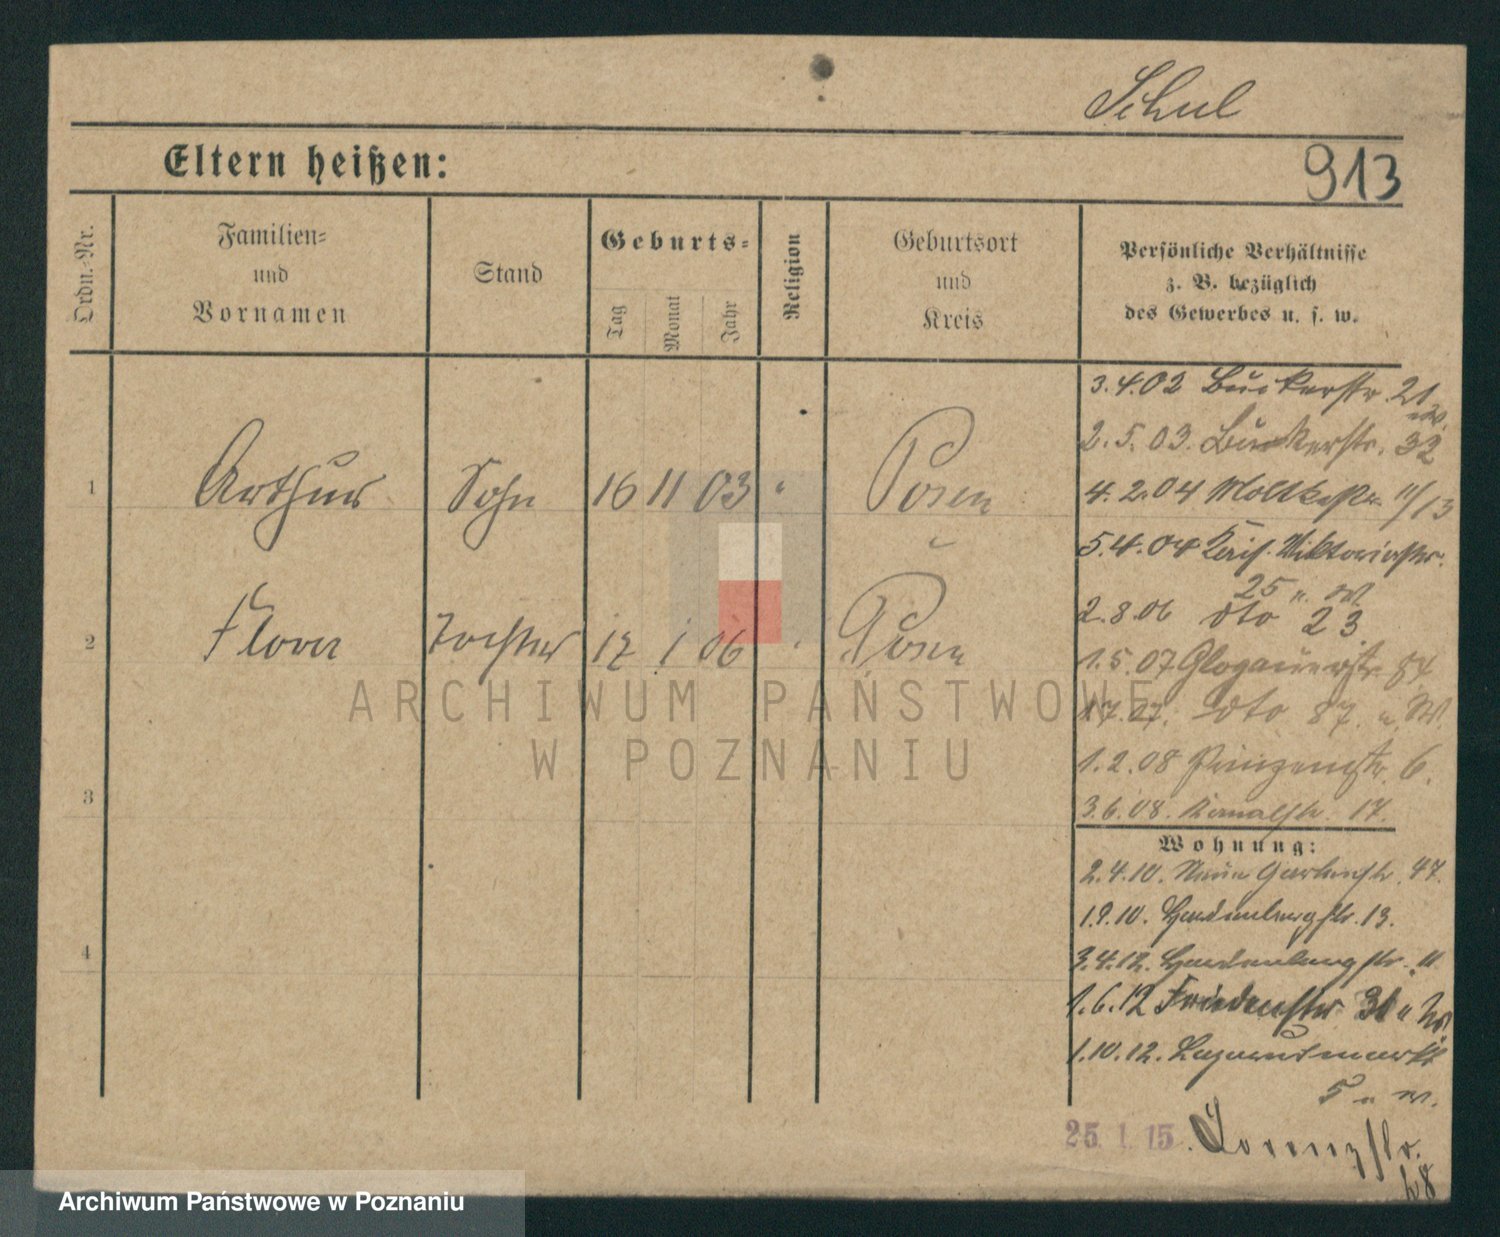 Schul
Eltern heißen:
913
Ordn.-Nr.
Familien-
und
Vornamen
Stand
Geburts-
Tag
Monat
Jahr
Religion
Geburtsort
und
Kreis
Persönliche Verhältnisse
z. B. bezüglich
des Gewerbes u. s. w.
3.4.02 Bukerstr. 21
2.5.03. Bukerstr. 32
1 Arthur Sohn 16 11 03 " Posen
4.2.04 Moltkestr. 11/13
5.4.04 Kais. Viktoriastr.
25 u. W.
2 Flora Tochter 17 1 06 " Posen
2.8.06 dto 23
1.5.07 Glogauerstr. 84
dto 87. u. W.
1.2.08 Prinzenstr. 6.
3
3.6.08. Kanalstr. 17.
Wohnung:
2.4.10. Neue Gartenstr. 47.
1.9.10. Hardenbergstr. 13.
4
3.4.12. Hardenbergstr. 11
1.6.12 Friedenstr. 31 u
1.10.12. Sapiehamarkt
5 u. W.
25. 1. 15. Lorenzstr.
ARCHIWUM PAŃSTWOWE
W POZNANIU
Archiwum Państwowe w Poznaniu